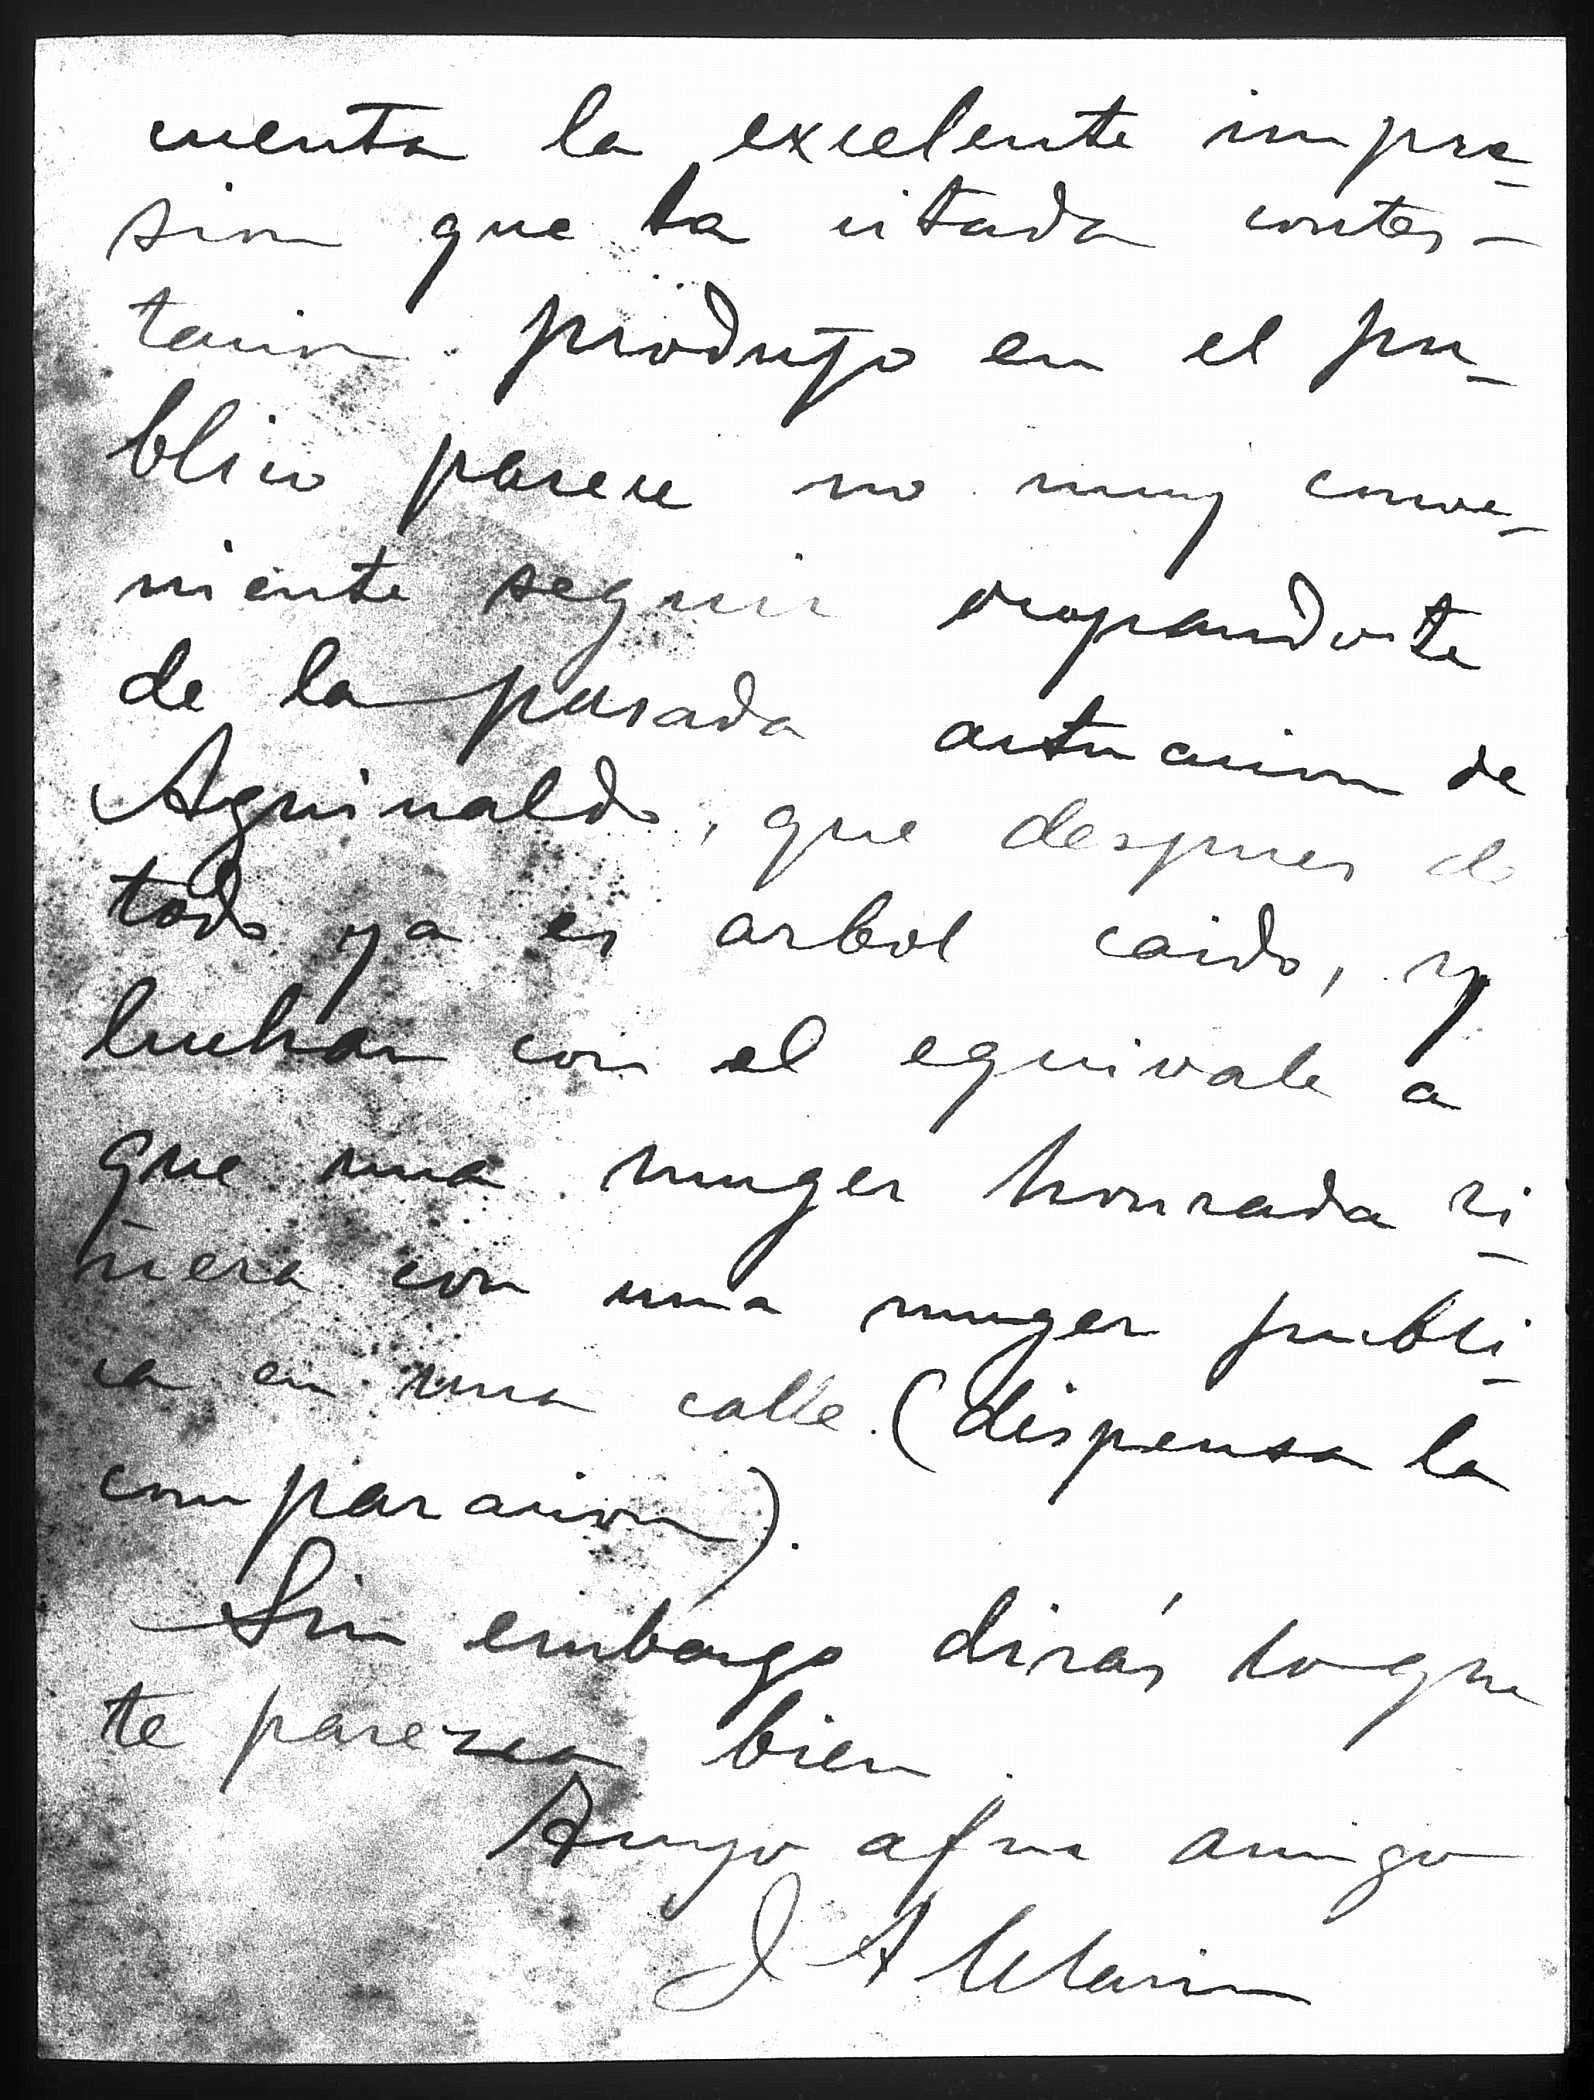 cuenta la excelente impre-
sion que la citada contes-
tacion produjo en el pu-
blico parece no muy conve-
niente seguir ocupandote
de la pasada actuacion de
Aguinaldo, que despues de
todo ya es arbol caido, y
luchar con el equivale a
que una muger honrada ri-
ñera con una muger publi-
ca en una calle. (dispensa la
comparacion).
Sin embargo dirás lo que
te paresca bien.
Suyo afmo amigo
J A